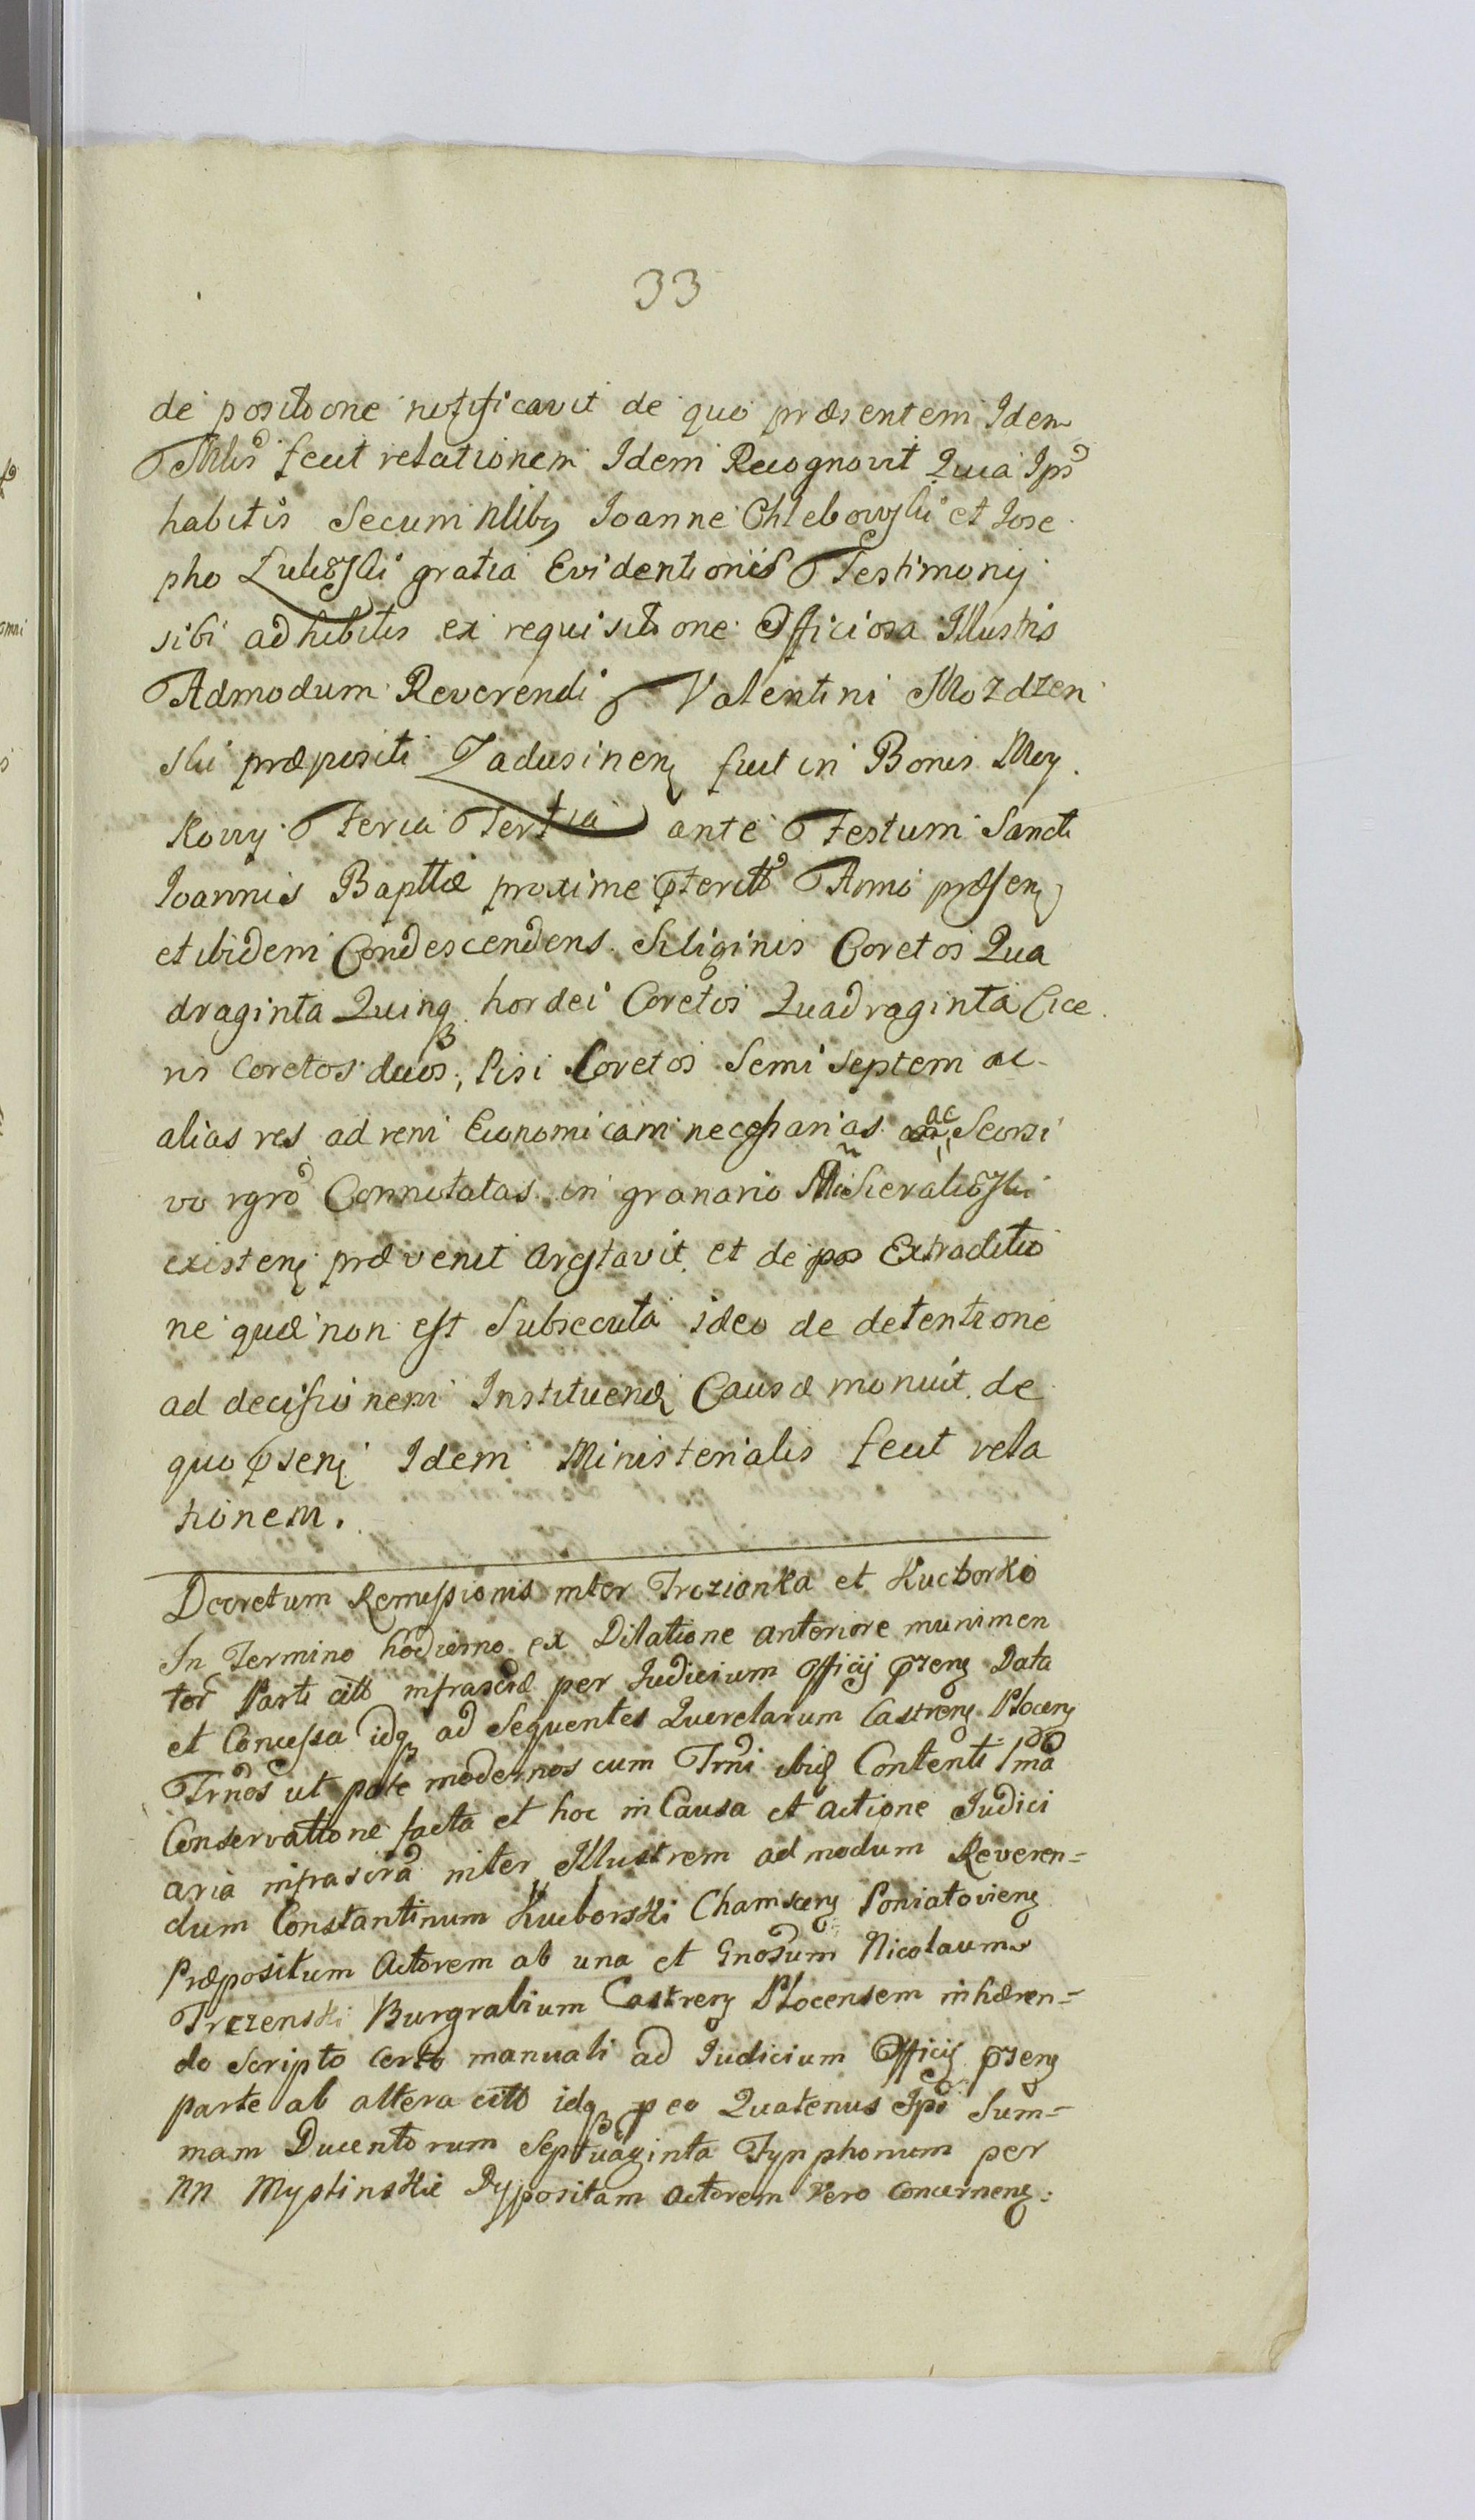 33
de positione notificavit de quo præsentem Idem
Mlis fecit relationem Idem Recognovit Quia Ips
habitis Secum Nlibg Ioanne Chlebowski et Iose
pho Lulewski gratia Evidentioris Testimony
sibi adhibitis ex requisitione Officiosa Illustris
Admodum Reverendi Valentini Mozdzen
ski præpositi Zadusinens fuit in Bonis Mey
kowy Feria Tertia ante Festum Sancti
Ioannis Bapttæ proxime pterito Anno præsens
et ibidem Condescendens Siliginis Coretos Qua
draginta Quinq hordei Coretos Quadraginta Cice
ris Coretos duos, Pisi Coretos Semi Septem ac
alias res ad rem Economicam necessarias ac Seorsi
vo rgro Connotatas in granario Sieralewski
existens prævenit arestavit et de pos Extraditio
ne quæ non est Subsecuta ideo de detentione
ad decisionem Instituend Causæ monuit de
quo psens Idem Ministerialis fecit rela
tionem.
Decretum Remissionis inter Trczianka et Kuczborko
In Termino hodierno ex Dilatione anteriore munimen
tor Parti citt infrascræ per Iudicium Officij psens Data
et Concessa idq ad Sequentes Querelarum Castrens Plocens
Trnos ut pote modernos cum Trni ibid Contenti Ima
Conservatione facta et hoc in Causa et actione Iudici
aria infrascra inter Illustrem admodum Reveren=
dum Constantinum Kucborski Chamscens Poniatoviens
Præpositum Actorem ab una et Gnosum Nicolaum
Trczenski Burgrabium Castrens Plocensem inhæren=
do Scripto Certo manuali ad Iudicium Officij psens
parte ab altera citt idq p eo Quatenus Ips Sum=
mam Ducentorum Septuaginta Tynphonum per
NN Myslinskie Dypositam Actorem Vero Concernens: